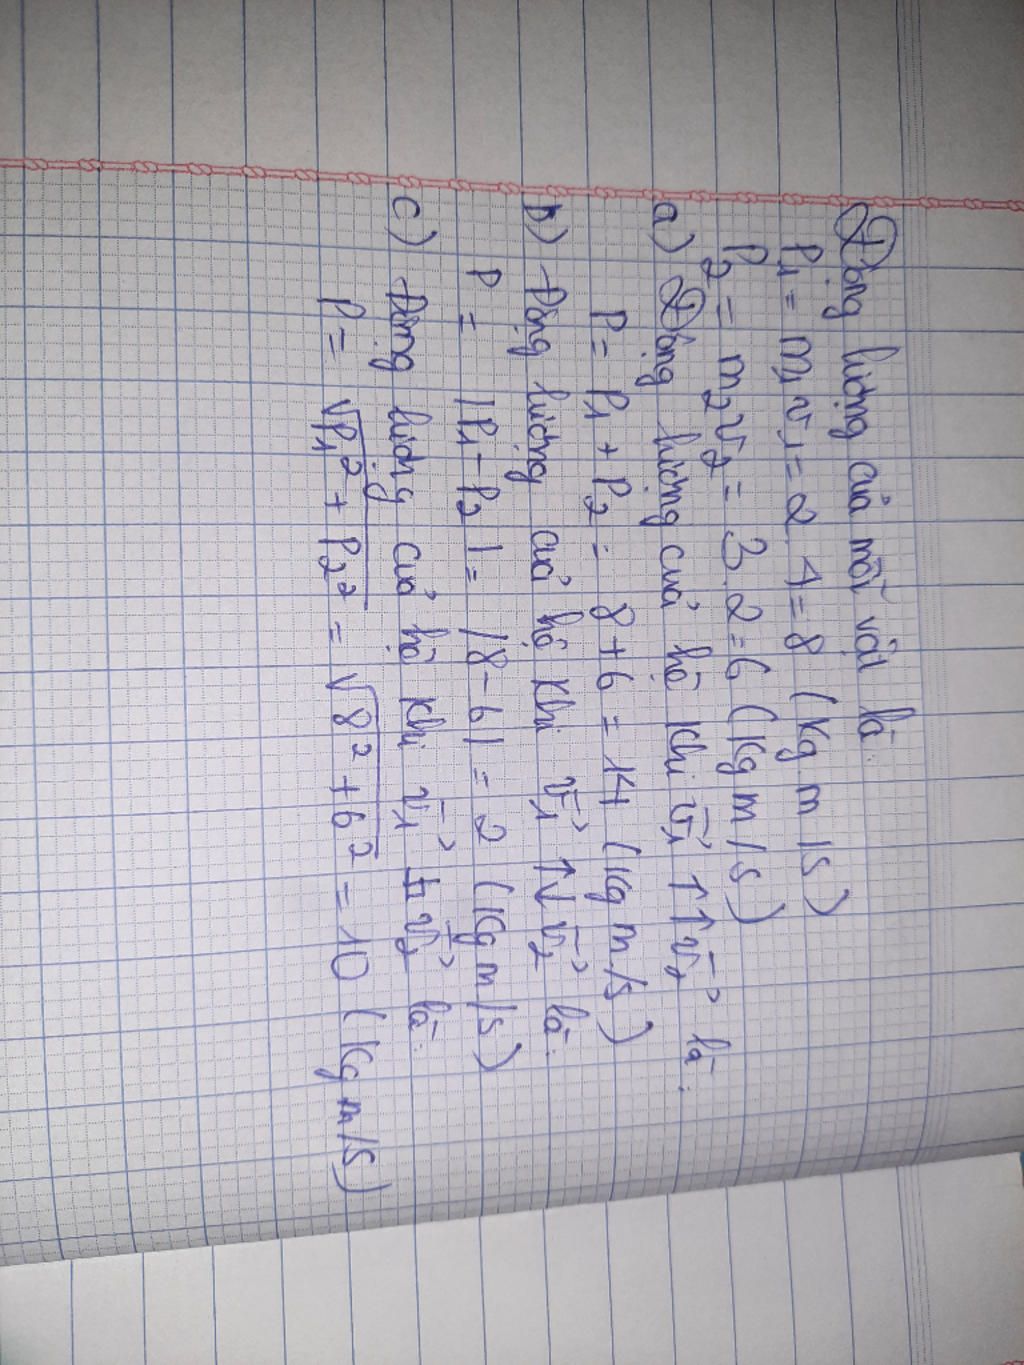 Động lượng của mỗi vật là:
P₁ = m₁v₁ = 2.4 = 8 (kg m/s)
P₂ = m₂v₂ = 3.2 = 6 (kg m/s)
a) Động lượng của hệ khi v₁→ ↑↑ v₂→ là:
P = P₁ + P₂ = 8 + 6 = 14 (kg m/s)
b) Động lượng của hệ khi v₁→ ↑↓ v₂→ là:
P = |P₁ - P₂| = |8 - 6| = 2 (kg m/s)
c) Động lượng của hệ khi v₁→ ⊥ v₂→ là:
P = √P₁² + P₂² = √8² + 6² = 10 (kg m/s)